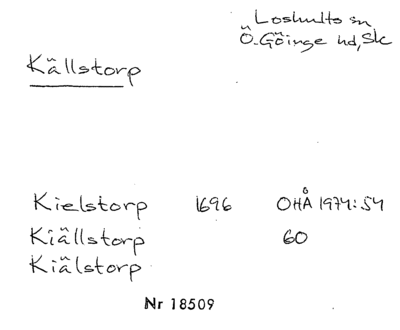 Loshults sn
Ö. Göinge hd, Sk
Källstorp
Kielstorp 1696 OHÅ 1974:54
Kiällstorp 60
Kiälstorp
Nr 18509